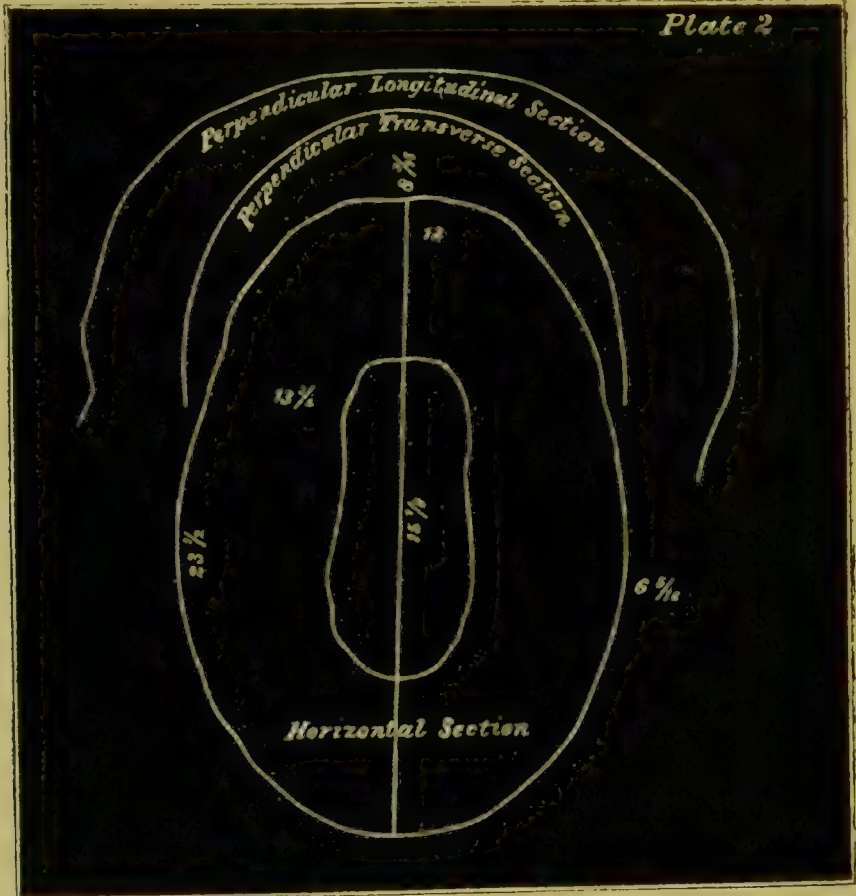 Plate 2
Perpendicular Longitudinal Section
Perpendicular Transverse Section
12
13 1/2
15 1/2
23 1/2
Horizontal Section